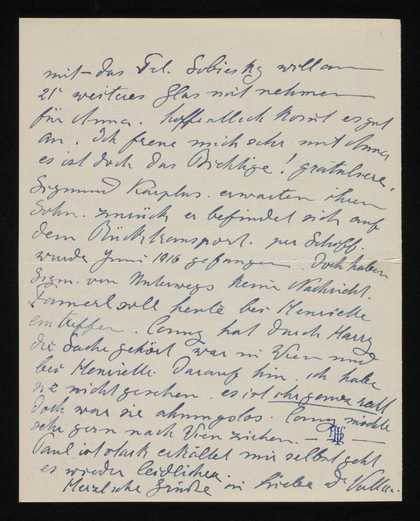 mit – das Frl. Sobiesky will am
25 weiteres Glas mit nehmen
für Anna. Hoffentlich kommt es gut
an. Ich freue mich sehr mit Anna
es ist doch das Richtige! gratuliere!
Sigmund Karplus. erwarten ihren
Sohn. zurück er befindet sich auf
dem Rücktransport. per Schiff.
wurde Juni 1916 gefangen. Doch haben
Sigm. von Unterwegs keine Nachricht.
soll heute bei Henriette
eintreffen. Conny hat durch Harry
die Sache gehört, war in Wien und
bei Henriette. Darauf hin. ich habe
sie nicht gesehen. es ist
doch war sie ahnungslos. Conny möchte
sehr gern nach Wien ziehen. –
Paul ist stark erkältet mir selbst geht
es wieder leidlicher.
Herzliche Grüße in Liebe